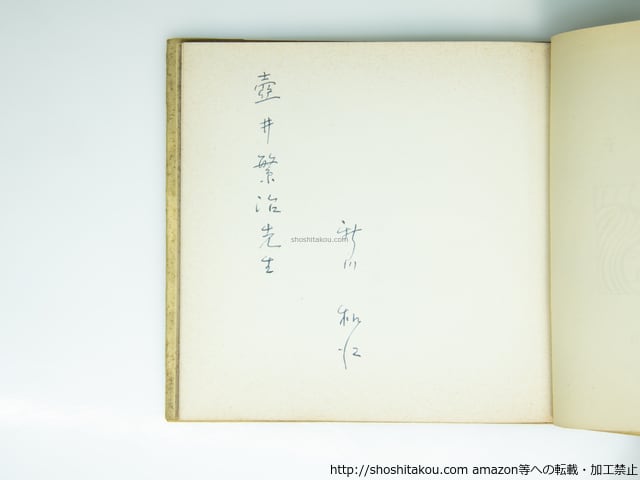 新川 和江
壺井繁治先生
shoshitakou.com
http://shoshitakou.com amazon等への転載・加工禁止